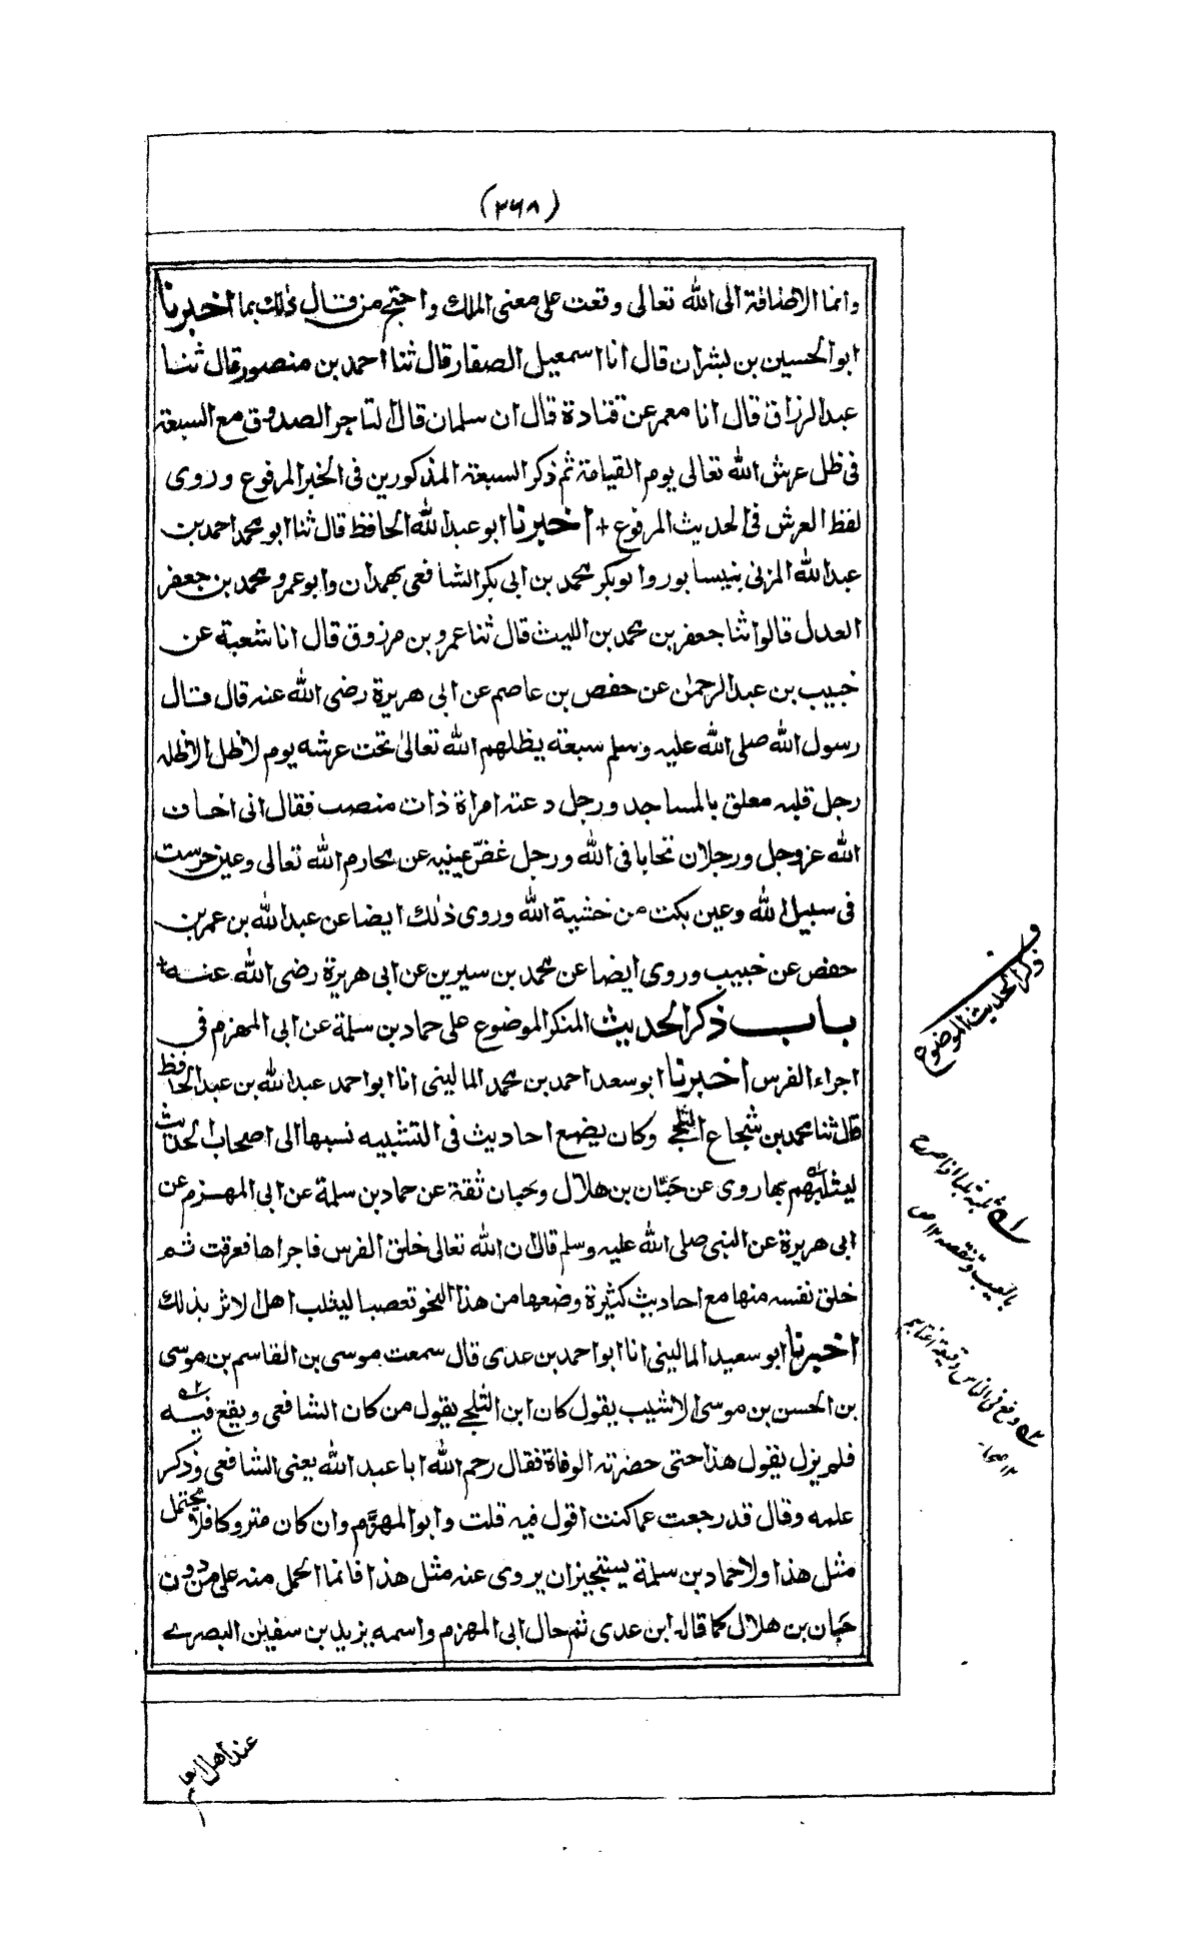 (٢٦٨)
وانما الاضافة الى الله تعالى وقعت على معنى الملك واحتج من قال ذلك بما اخبرنا
ابو الحسين بن بشران قال انا اسمعيل الصفار قال ثنا احمد بن منصور قال ثنا
عبد الرزاق قال انا معمر عن قتادة قال ان سلمان قال التاجر الصدوق مع السبعة
فى ظل عرش الله تعالى يوم القيامة ثم ذكر السبعة المذكورين فى الخبر المرفوع وروى
لفظ العرش فى الحديث المرفوع + اخبرنا ابو عبد الله الحافظ قال ثنا ابو محمد احمد بن
عبد الله المزنى بنيسابور وابو بكر محمد بن ابى بكر الشافعى بهمدان وابو عمرو محمد بن جعفر
العدل قالوا ثنا جعفر بن محمد بن الليث قال ثنا عمرو بن مرزوق قال انا شعبة عن
خبيب بن عبد الرحمٰن عن حفص بن عاصم عن ابى هريرة رضى الله عنه قال قال
رسول الله صلى الله عليه وسلم سبعة يظلهم الله تعالىٰ تحت عرشه يوم لا ظل الا ظله
رجل قلبه معلق بالمساجد ورجل دعته امراة ذات منصب فقال انى اخاف
الله عز وجل ورجلان تحابا فى الله ورجل غضّ عينيه عن محارم الله تعالى وعين حرست
فى سبيل الله وعين بكت من خشية الله وروى ذلك ايضا عن عبد الله بن عمر بن
حفص عن خبيب وروى ايضا عن محمد بن سيرين عن ابى هريرة رضى الله عنه +
باب ذكر الحديث المنكر الموضوع على حماد بن سلمة عن ابى المهزم فى
اجراء الفرس اخبرنا ابو سعد احمد بن محمد المالينى انا ابو احمد عبد الله بن عبد الحافظ
قال ثنا محمد بن شجاع الثلجے وكان يضع احاديث فى التشبيه نسبها الى اصحاب الحديث
ليثلبهم بها روى عن حَبّان بن هلال وحبان ثقة عن حماد بن سلمة عن ابى المهزم عن
ابى هريرة عن النبى صلى الله عليه وسلم قال ان الله تعالى خلق الفرس فاجراها فعرقت ثم
خلق نفسه منها مع احاديث كثيرة وضعها من هذا النحو تعصبا ليثلب اهل الاثر بذلك
اخبرنا ابو سعيد المالينى انا ابو احمد بن عدى قال سمعت موسى بن القاسم بن موسى
بن الحسن بن موسى الاشيب يقول كان ابن الثلجے يقول من كان الشافعى ويقع فيه
فلم يزل يقول هذا حتى حضرته الوفاة فقال رحم الله ابا عبد الله يعنى الشافعى وذكر
علمه وقال قد رجعت عما كنت اقول فيه قلت وابو المهزّم وان كان متروكا فلا يحتمل
مثل هذا ولا حماد بن سلمة يستجيز ان يروى عنه مثل هذا فانما الحمل منه على من دون
حَبان بن هلال كما قاله ابن عدى ثم حال ابى المهزم واسمه يزيد بن سفين البصرے
ذكر الحديث الموضوع
بالعيب وتنقصه ١٢ ص
وقع فى الناس
عند اهل العلم